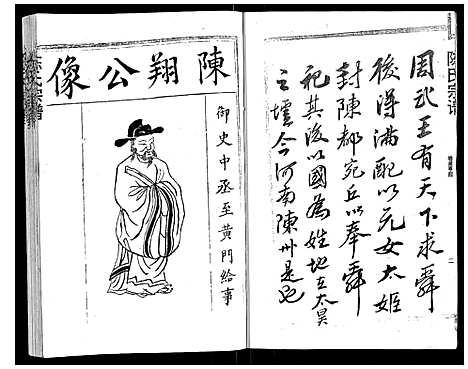 陳氏宗譜
周武王有天下求舜
後得滿配以元女太姬
封陳都宛丘以奉舜
祀其後以國為姓地在太昊
之墟今河南陳州是也
陳翔公像
御史中丞至黄門給事